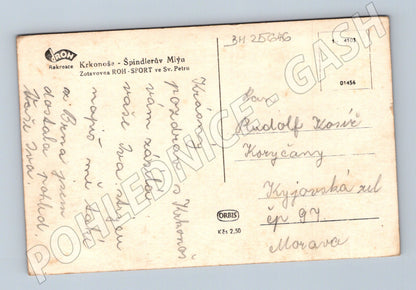 ROH
Rekreace
Krkonoše - Špindlerův Mlýn
Zotavovna ROH - SPORT ve Sv. Petru
BH 25646
01456
Krásný
pozdrav z Krkonoš
vám zasílá
vaše Iva
napište mi
z Brna jsem
dostala pohled
Vaše Iva.
Pan
Rudolf Kosíř
Koryčany
Kyjovská ul
čp 97
Morava
ORBIS
Kčs 2,50
POHLEDNICE - GASH